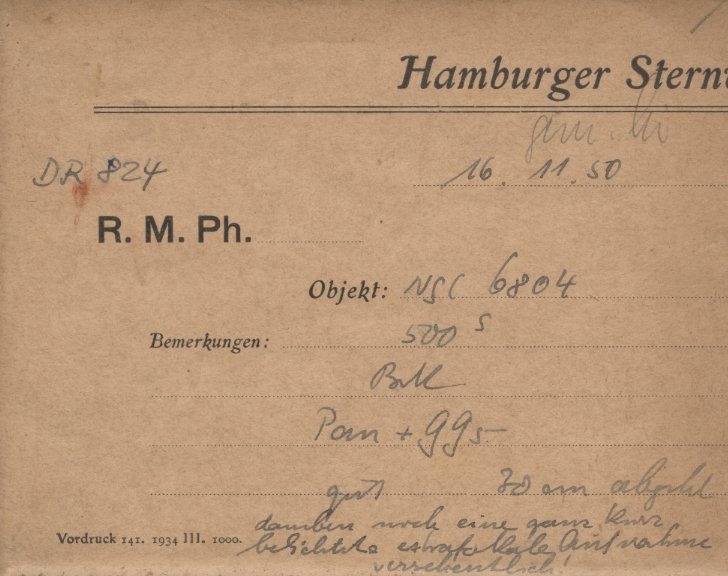 Hamburger Stern
DR 824
16. 11. 50
R. M. Ph.
Objekt: NGC 6804
Bemerkungen: 500 s
Pan + GG5
gut 30 cm
daneben noch eine ganz kurz
belichtete extrafokale Aufnahme
versehentlich!
Vordruck 141. 1934 III. 1000.